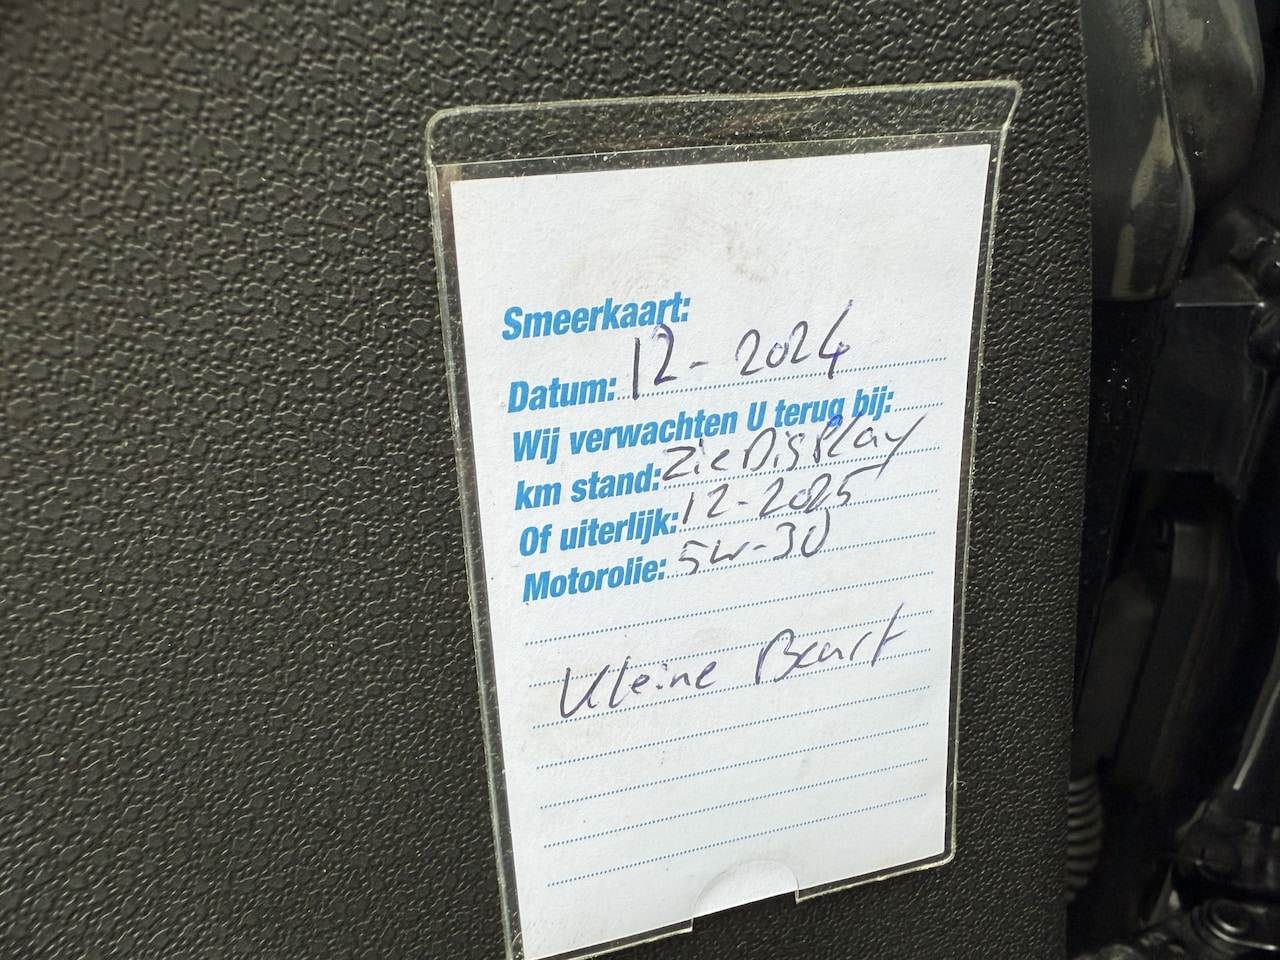 Smeerkaart:
Datum: 12-2024
Wij verwachten U terug bij:
km stand: Zie DisPlay
Of uiterlijk: 12-2025
Motorolie: 5w-30
Kleine Beurt